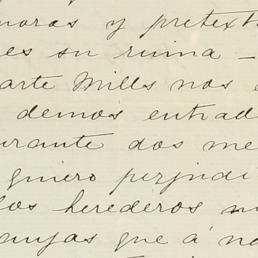 moras y pretext
es su ruina —
arte Mills nos
demos entrad
urante dos me
quiero perjudi
los herederos
anjas que á no